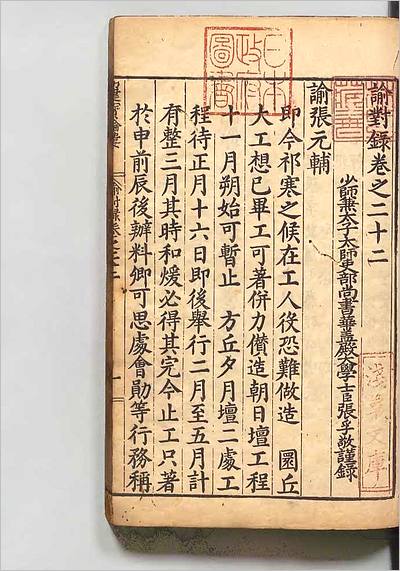 諭對錄卷之二十二
少師兼太子太師吏部尚書華蓋殿大學士臣張孚敬謹錄
諭張元輔
即今祁寒之候在工人役恐難做造 圜丘
大工想已畢工可著併力儹造朝日壇工程
十一月朔始可暫止 方丘夕月壇二處工
程待正月十六日即後舉行二月至五月計
有整三月其時和煖必得其完今止工只著
於申前辰後辦料卿可思處會勛等行務稱
日本
政府
圖書
淺草文庫